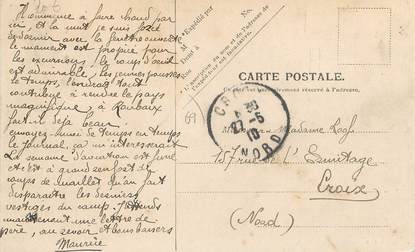 Il commence à faire chaud par
ici et la nuit je suis forcé
de dormir avec la fenêtre ouverte
le moment est propice pour
les excursions, le coup d'oeil
est admirable, les jeunes pousses
le temps, l'endroit tout
contribue à rendre le pays
magnifique, à Roubaix
fait-il déjà beau
envoyez-nous de temps en temps
le journal, ça m'intéresserait
La semaine d'aviation est finie
et c'est à grand renfort de
coups de maillet qu'on fait
disparaître les derniers
vestiges du camp. J'attends
maintenant une lettre de
père, au revoir et bons baisers
Maurice
CARTE POSTALE.
Ce côté est exclusivement réservé à l'adresse.
Madame
157 rue de l'Ermitage
Croix
(Nord)
69
CROIX
27-5
10
NORD